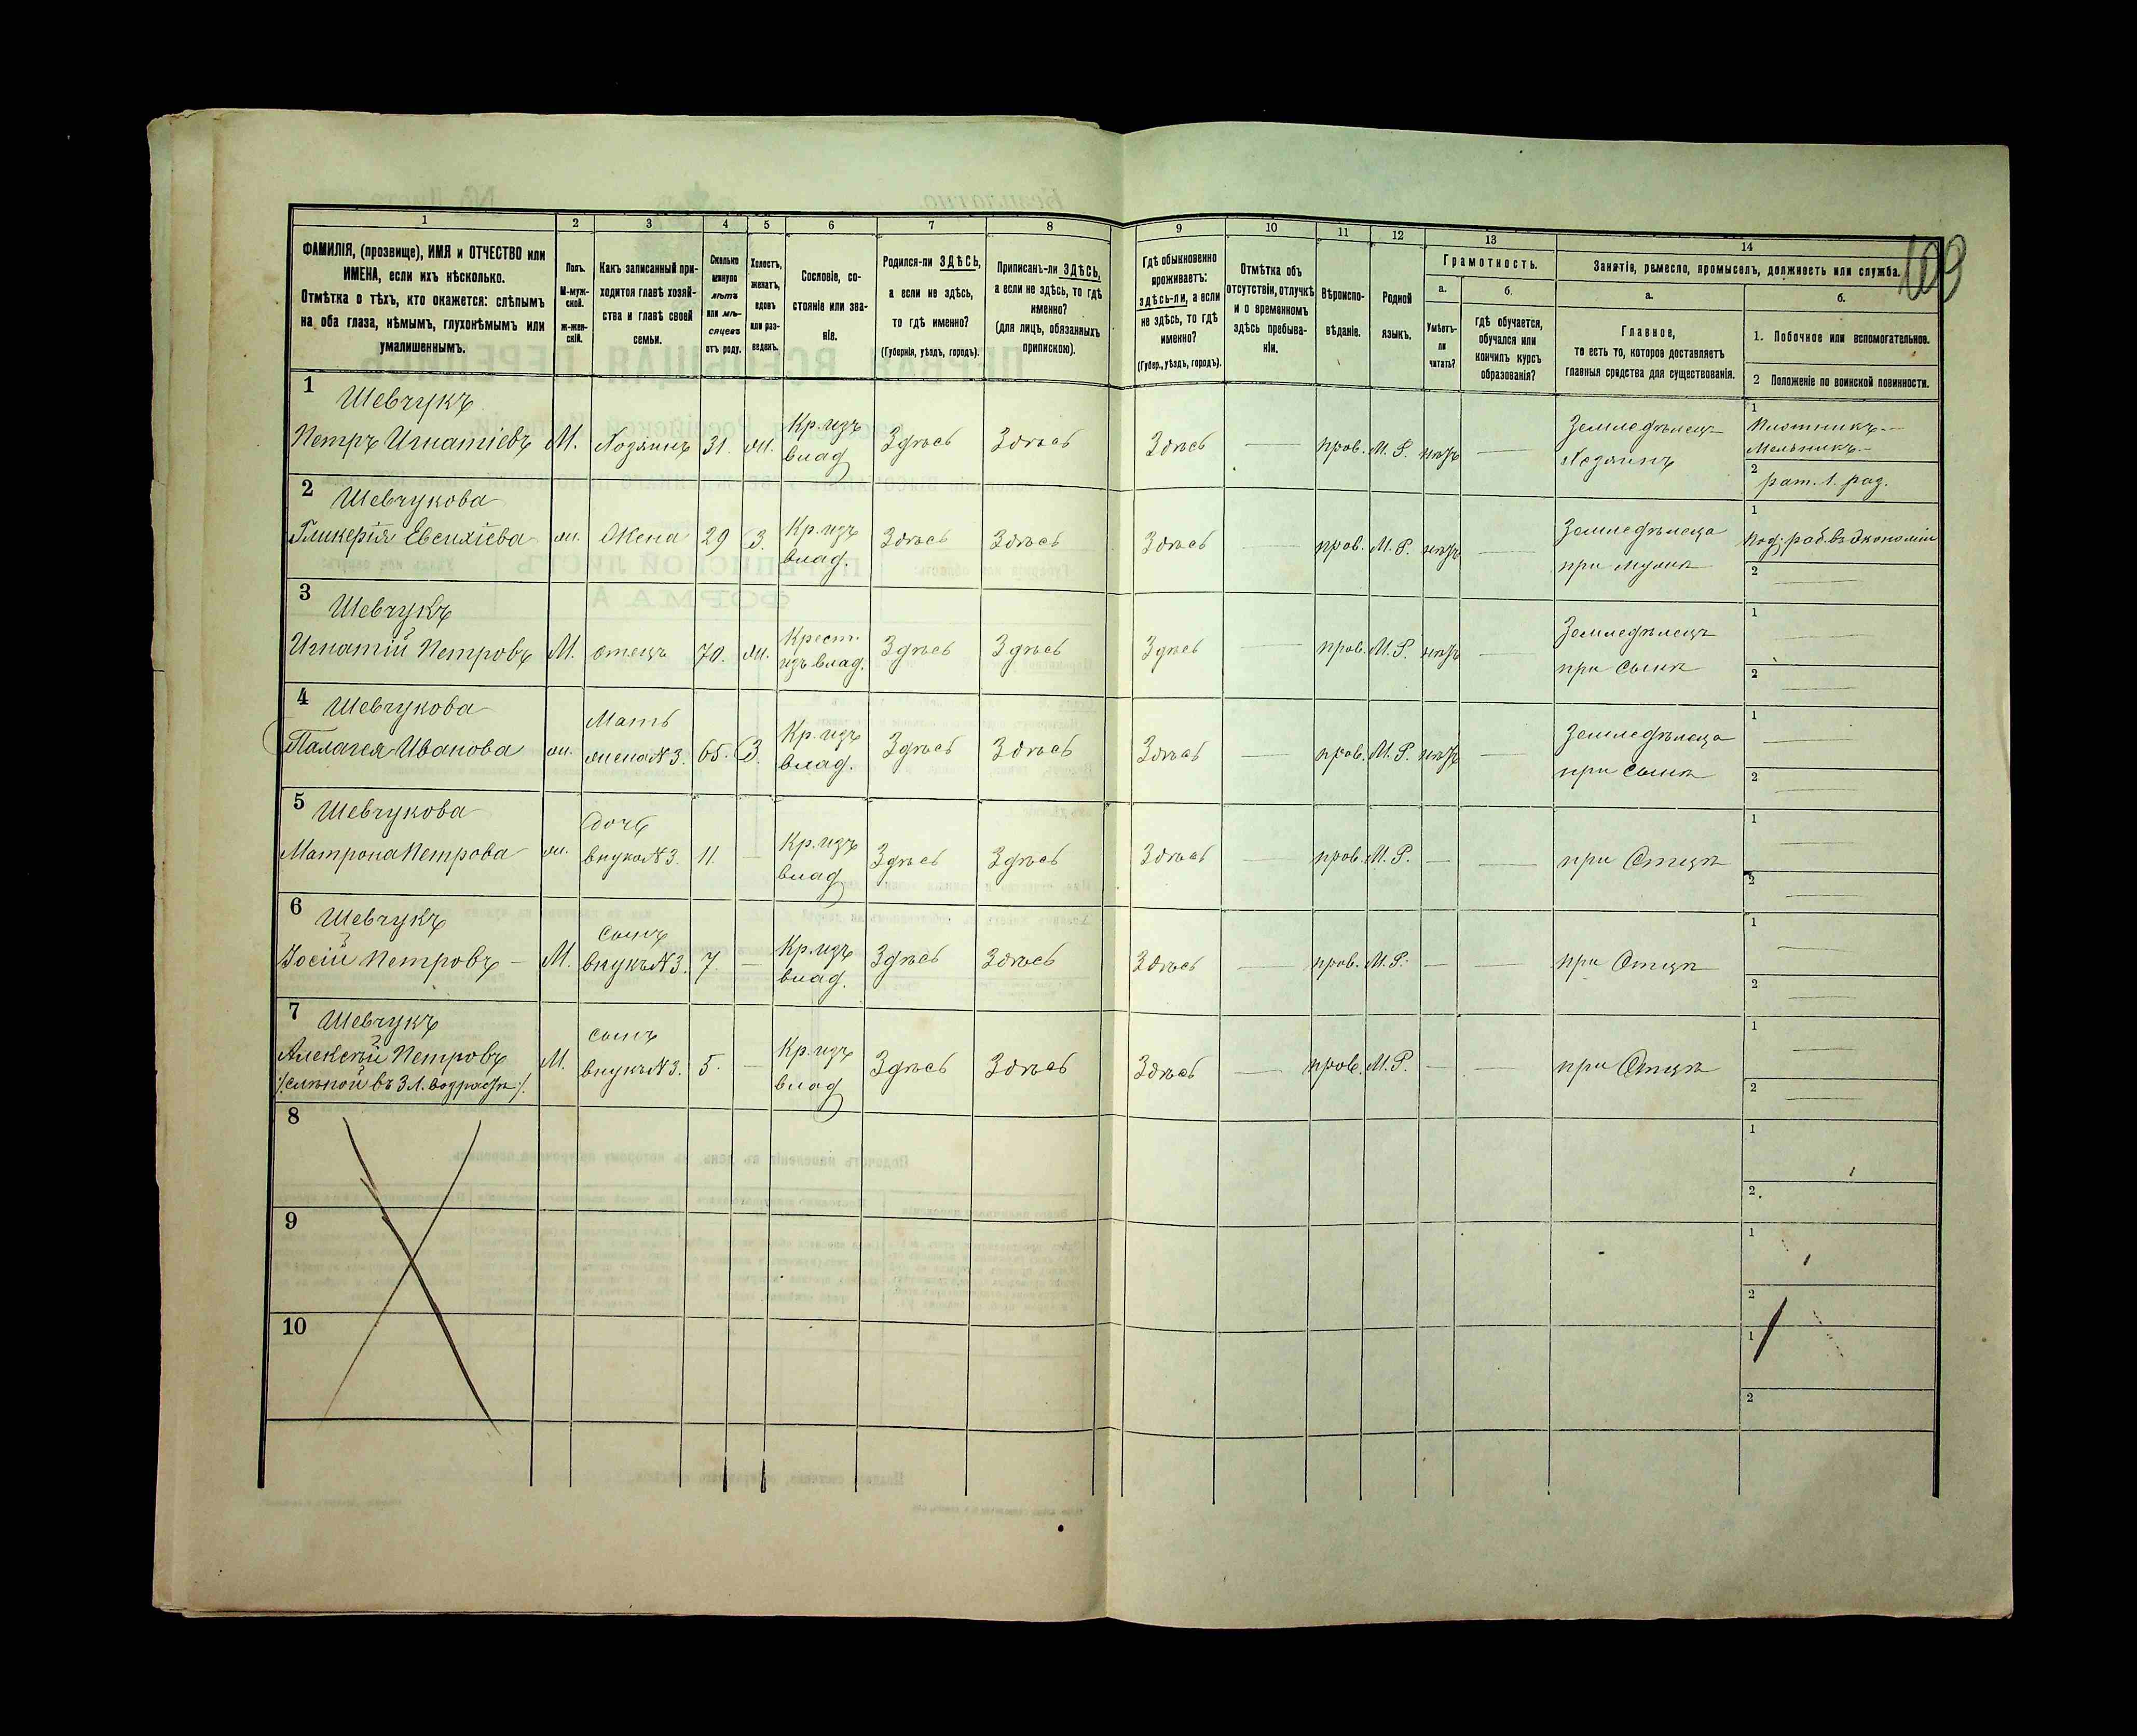 109
1 2 3 4 5 6 7 8 9 10 11 12 13 14
ФАМИЛІЯ, (прозвище), ИМЯ и ОТЧЕСТВО или
ИМЕНА, если ихъ нѣсколько.
Отмѣтка о тѣхъ, кто окажется: слѣпымъ
на оба глаза, нѣмымъ, глухонѣмымъ или
умалишеннымъ.
Полъ.
М-муж-
ской.
ж-жен-
скій.
Какъ записанный при-
ходится главѣ хозяй-
ства и главѣ своей
семьи.
Сколько
минуло
лѣтъ
или мѣ-
сяцевъ
отъ роду.
Холостъ,
женатъ,
вдовъ
или раз-
веденъ.
Сословіе, со-
стояніе или зва-
ніе.
Родился-ли ЗДѢСЬ,
а если не здѣсь,
то гдѣ именно?
(Губернія, уѣздъ, городъ).
Приписанъ-ли ЗДѢСЬ,
а если не здѣсь, то гдѣ
именно?
(для лицъ, обязанныхъ
припискою).
Гдѣ обыкновенно
проживаетъ:
здѣсь-ли, а если
не здѣсь, то гдѣ
именно?
(Губер., уѣздъ, городъ).
Отмѣтка объ
отсутствіи, отлучкѣ
и о временномъ
здѣсь пребыва-
ніи.
Вѣроиспо-
вѣданіе.
Родной
языкъ.
Грамотность.
а.
Умѣетъ-
ли
читать?
б.
Гдѣ обучается,
обучался или
кончилъ курсъ
образованія?
Занятія, ремесло, промыселъ, должность или служба.
а.
Главное,
то есть то, которое доставляетъ
главныя средства для существованія.
б.
1. Побочное или вспомогательное.
2 Положеніе по воинской повинности.
1
Шевчукъ
Петръ Игнатіевъ М. Хозяинъ 31. ж. Кр. изъ влад Здѣсь Здѣсь Здѣсь — прав. М. Р. нѣтъ —
Земледѣлец
Хозяинъ
1
Плотникъ
Мельникъ
2
рат. 1. раз.
2
Шевчукова
Гликерія Евсихіева ж. Жена 29 З. Кр. изъ влад. Здѣсь Здѣсь Здѣсь — прав. М. Р. нѣтъ
Земледѣлеца
при мужѣ
1
Под. раб. въ Экономіи
2 —
3
Шевчукъ
Игнатій Петровъ М. отецъ 70. ж. Крест. изъ влад. Здѣсь Здѣсь Здѣсь — прав. М. Р. нѣтъ —
Земледѣлецъ
при сынѣ
1 —
2 —
4
Шевчукова
Палагея Иванова ж. Мать жена N 3. 65. З. Кр. изъ влад. Здѣсь Здѣсь Здѣсь — прав. М. Р. нѣтъ —
Земледѣлеца
при сынѣ
1 —
2 —
5
Шевчукова
Матрона Петрова ж. Дочь внука N 3. 11. — Кр. изъ влад Здѣсь Здѣсь Здѣсь — прав. М. Р. — — при Отцѣ
1 —
2 —
6
Шевчукъ
Іосій Петровъ — М. сынъ внукъ N 3. 7. — Кр. изъ влад. Здѣсь Здѣсь Здѣсь — прав. М. Р. — — при Отцѣ
1 —
2 —
7
Шевчукъ
Алексѣй Петровъ М. сынъ внукъ N 3. 5. — Кр. изъ влад Здѣсь Здѣсь Здѣсь — прав. М. Р. — — при Отцѣ
/слѣпой въ 3 л. возрастѣ/.
1 —
2 —
8
1
2
9
1
2
10
1
2